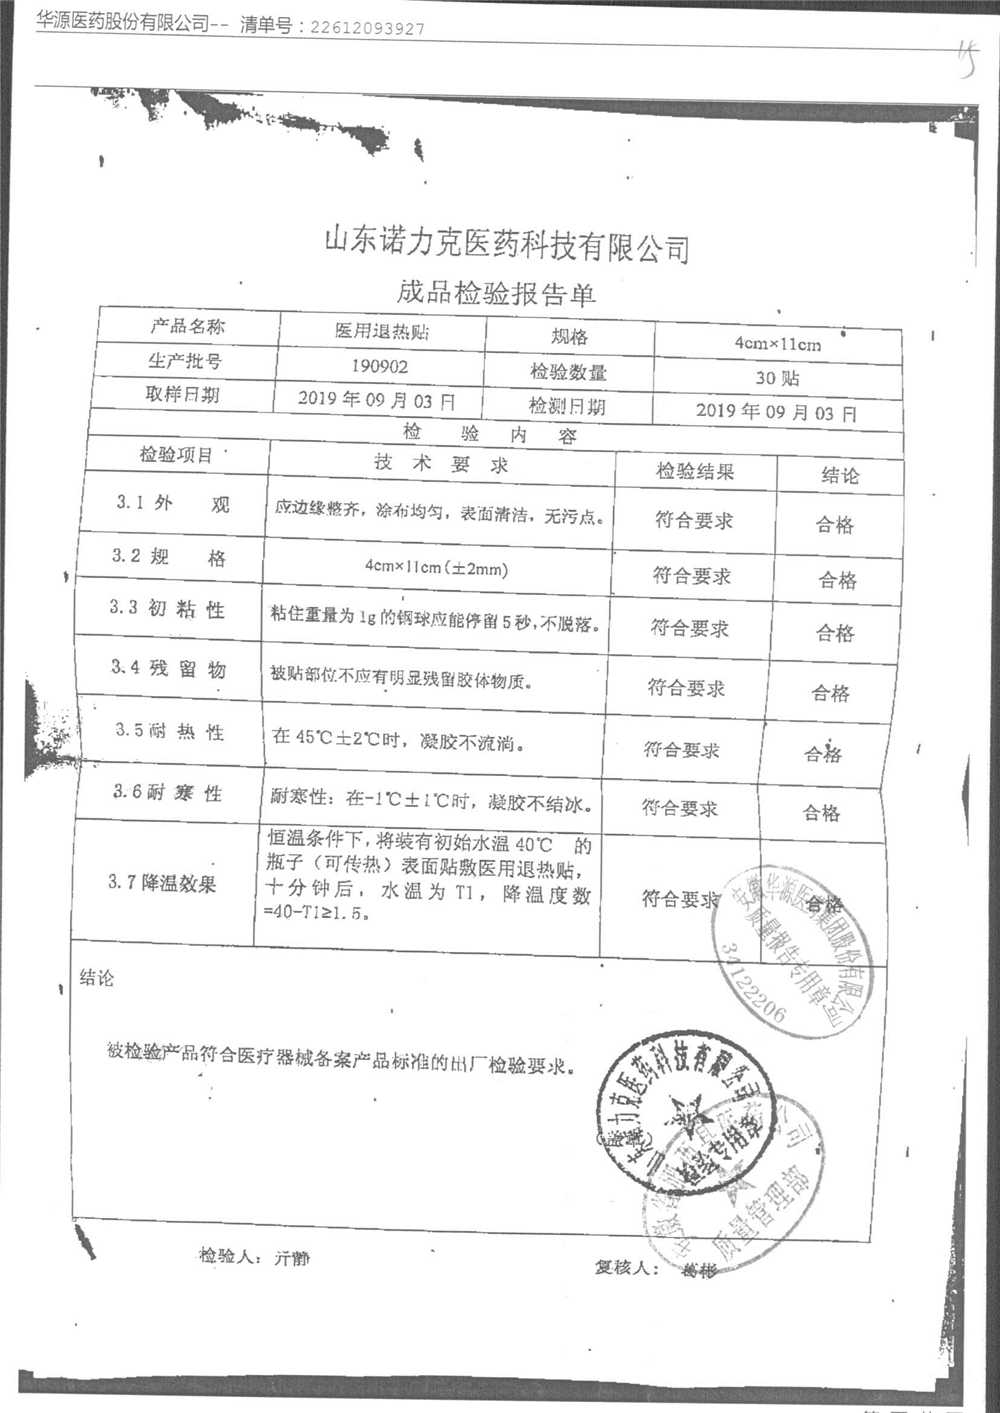 华源医药股份有限公司-- 清单号：22612093927
15
山东诺力克医药科技有限公司
成品检验报告单
产品名称 医用退热贴 规格 4cm×11cm
生产批号 190902 检验数量 30 贴
取样日期 2019 年 09 月 03 日 检测日期 2019 年 09 月 03 日
检 验 内 容
检验项目 技 术 要 求 检验结果 结论
3.1 外 观 应边缘整齐，涂布均匀，表面清洁，无污点。 符合要求 合格
3.2 规 格 4cm×11cm(±2mm) 符合要求 合格
3.3 初 粘 性 粘住重量为 1g 的钢球应能停留 5 秒，不脱落。 符合要求 合格
3.4 残 留 物 被贴部位不应有明显残留胶体物质。 符合要求 合格
3.5 耐 热 性 在 45℃±2℃时，凝胶不流淌。 符合要求 合格
3.6 耐 寒 性 耐寒性：在-1℃±1℃时，凝胶不结冰。 符合要求 合格
恒温条件下，将装有初始水温 40℃ 的
瓶子（可传热）表面贴敷医用退热贴，
3.7 降温效果 十分钟后，水温为 T1，降温度数 符合要求 合格
=40-T1≥1.5。
安徽华源医药集团股份有限公司
质量报告专用章
34122206
结论
被检验产品符合医疗器械备案产品标准的出厂检验要求。
山东诺力克医药科技有限公司
检验专用章
质量管理部
检验人：亓静 复核人：葛彬